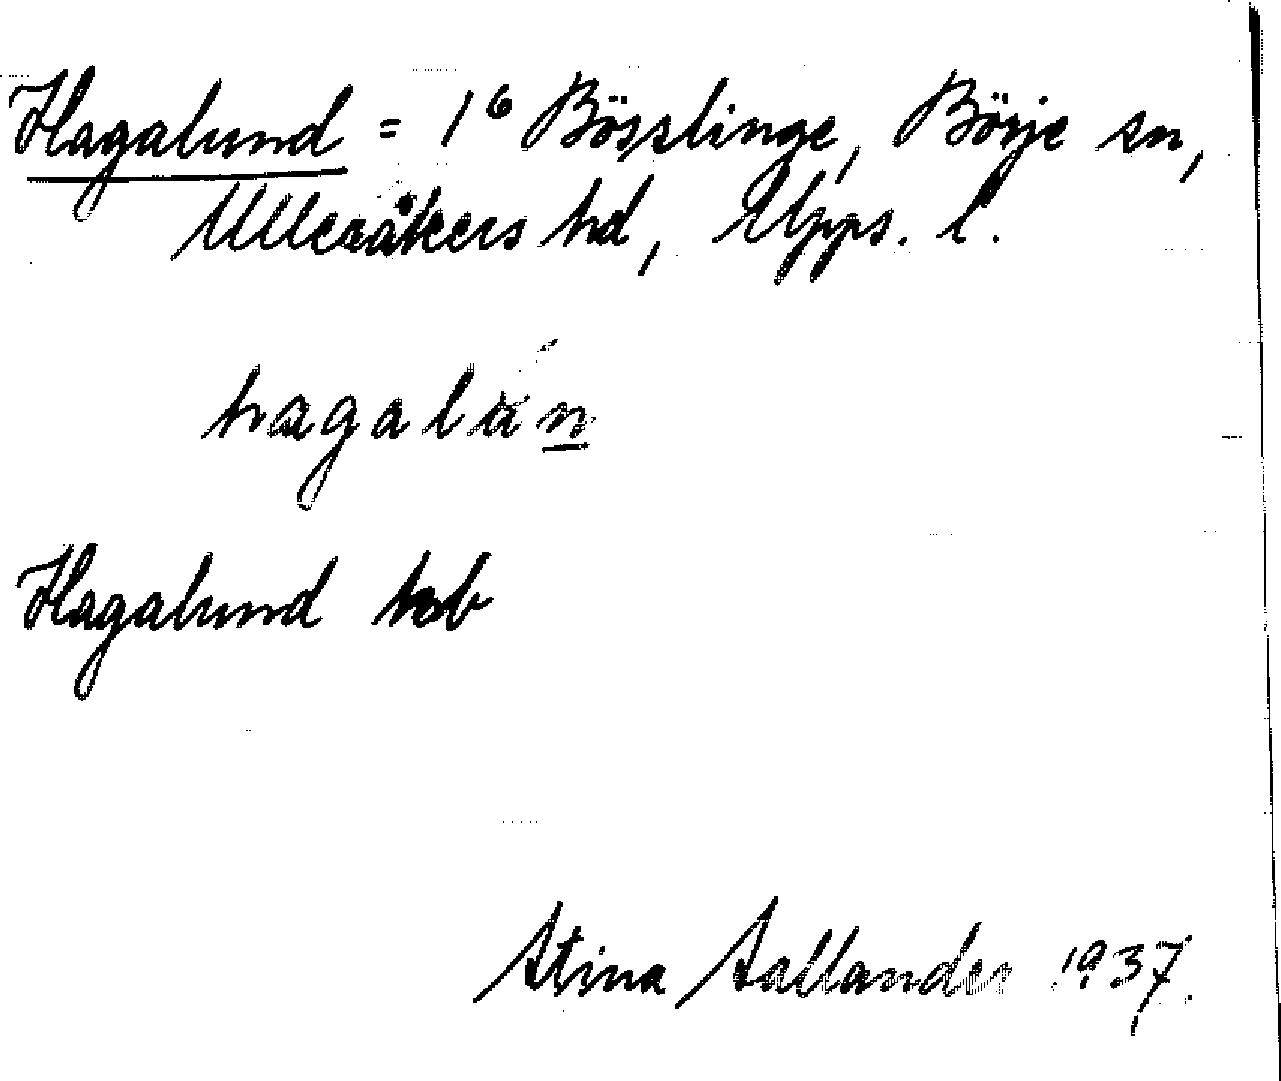 Hagalund = 1⁶ Bösslinge, Börje sn,
Ulleråkers hd, Upps. l.
hagalun
Hagalund hob
Stina Sallander 1937.